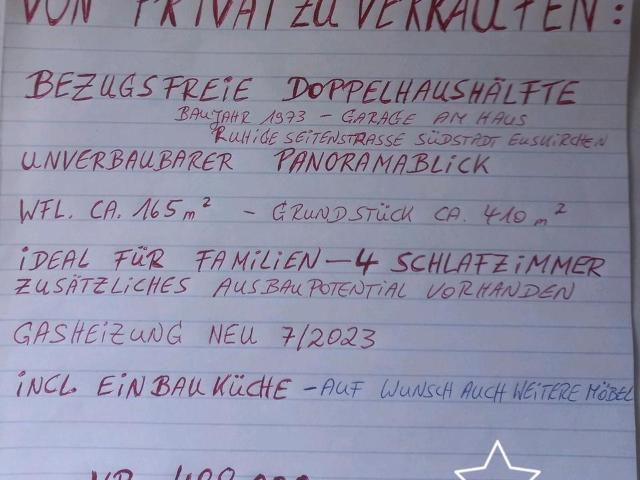 VON PRIVAT ZU VERKAUFEN:
BEZUGSFREIE DOPPELHAUSHÄLFTE
BAUJAHR 1973 – GARAGE AM HAUS
RUHIGE SEITENSTRASSE SÜDSTADT EUSKIRCHEN
UNVERBAUBARER PANORAMABLICK
WFL. CA. 165 m² – GRUNDSTÜCK CA. 410 m²
IDEAL FÜR FAMILIEN – 4 SCHLAFZIMMER
ZUSÄTZLICHES AUSBAUPOTENTIAL VORHANDEN
GASHEIZUNG NEU 7/2023
INCL. EINBAUKÜCHE – AUF WUNSCH AUCH WEITERE MÖBEL